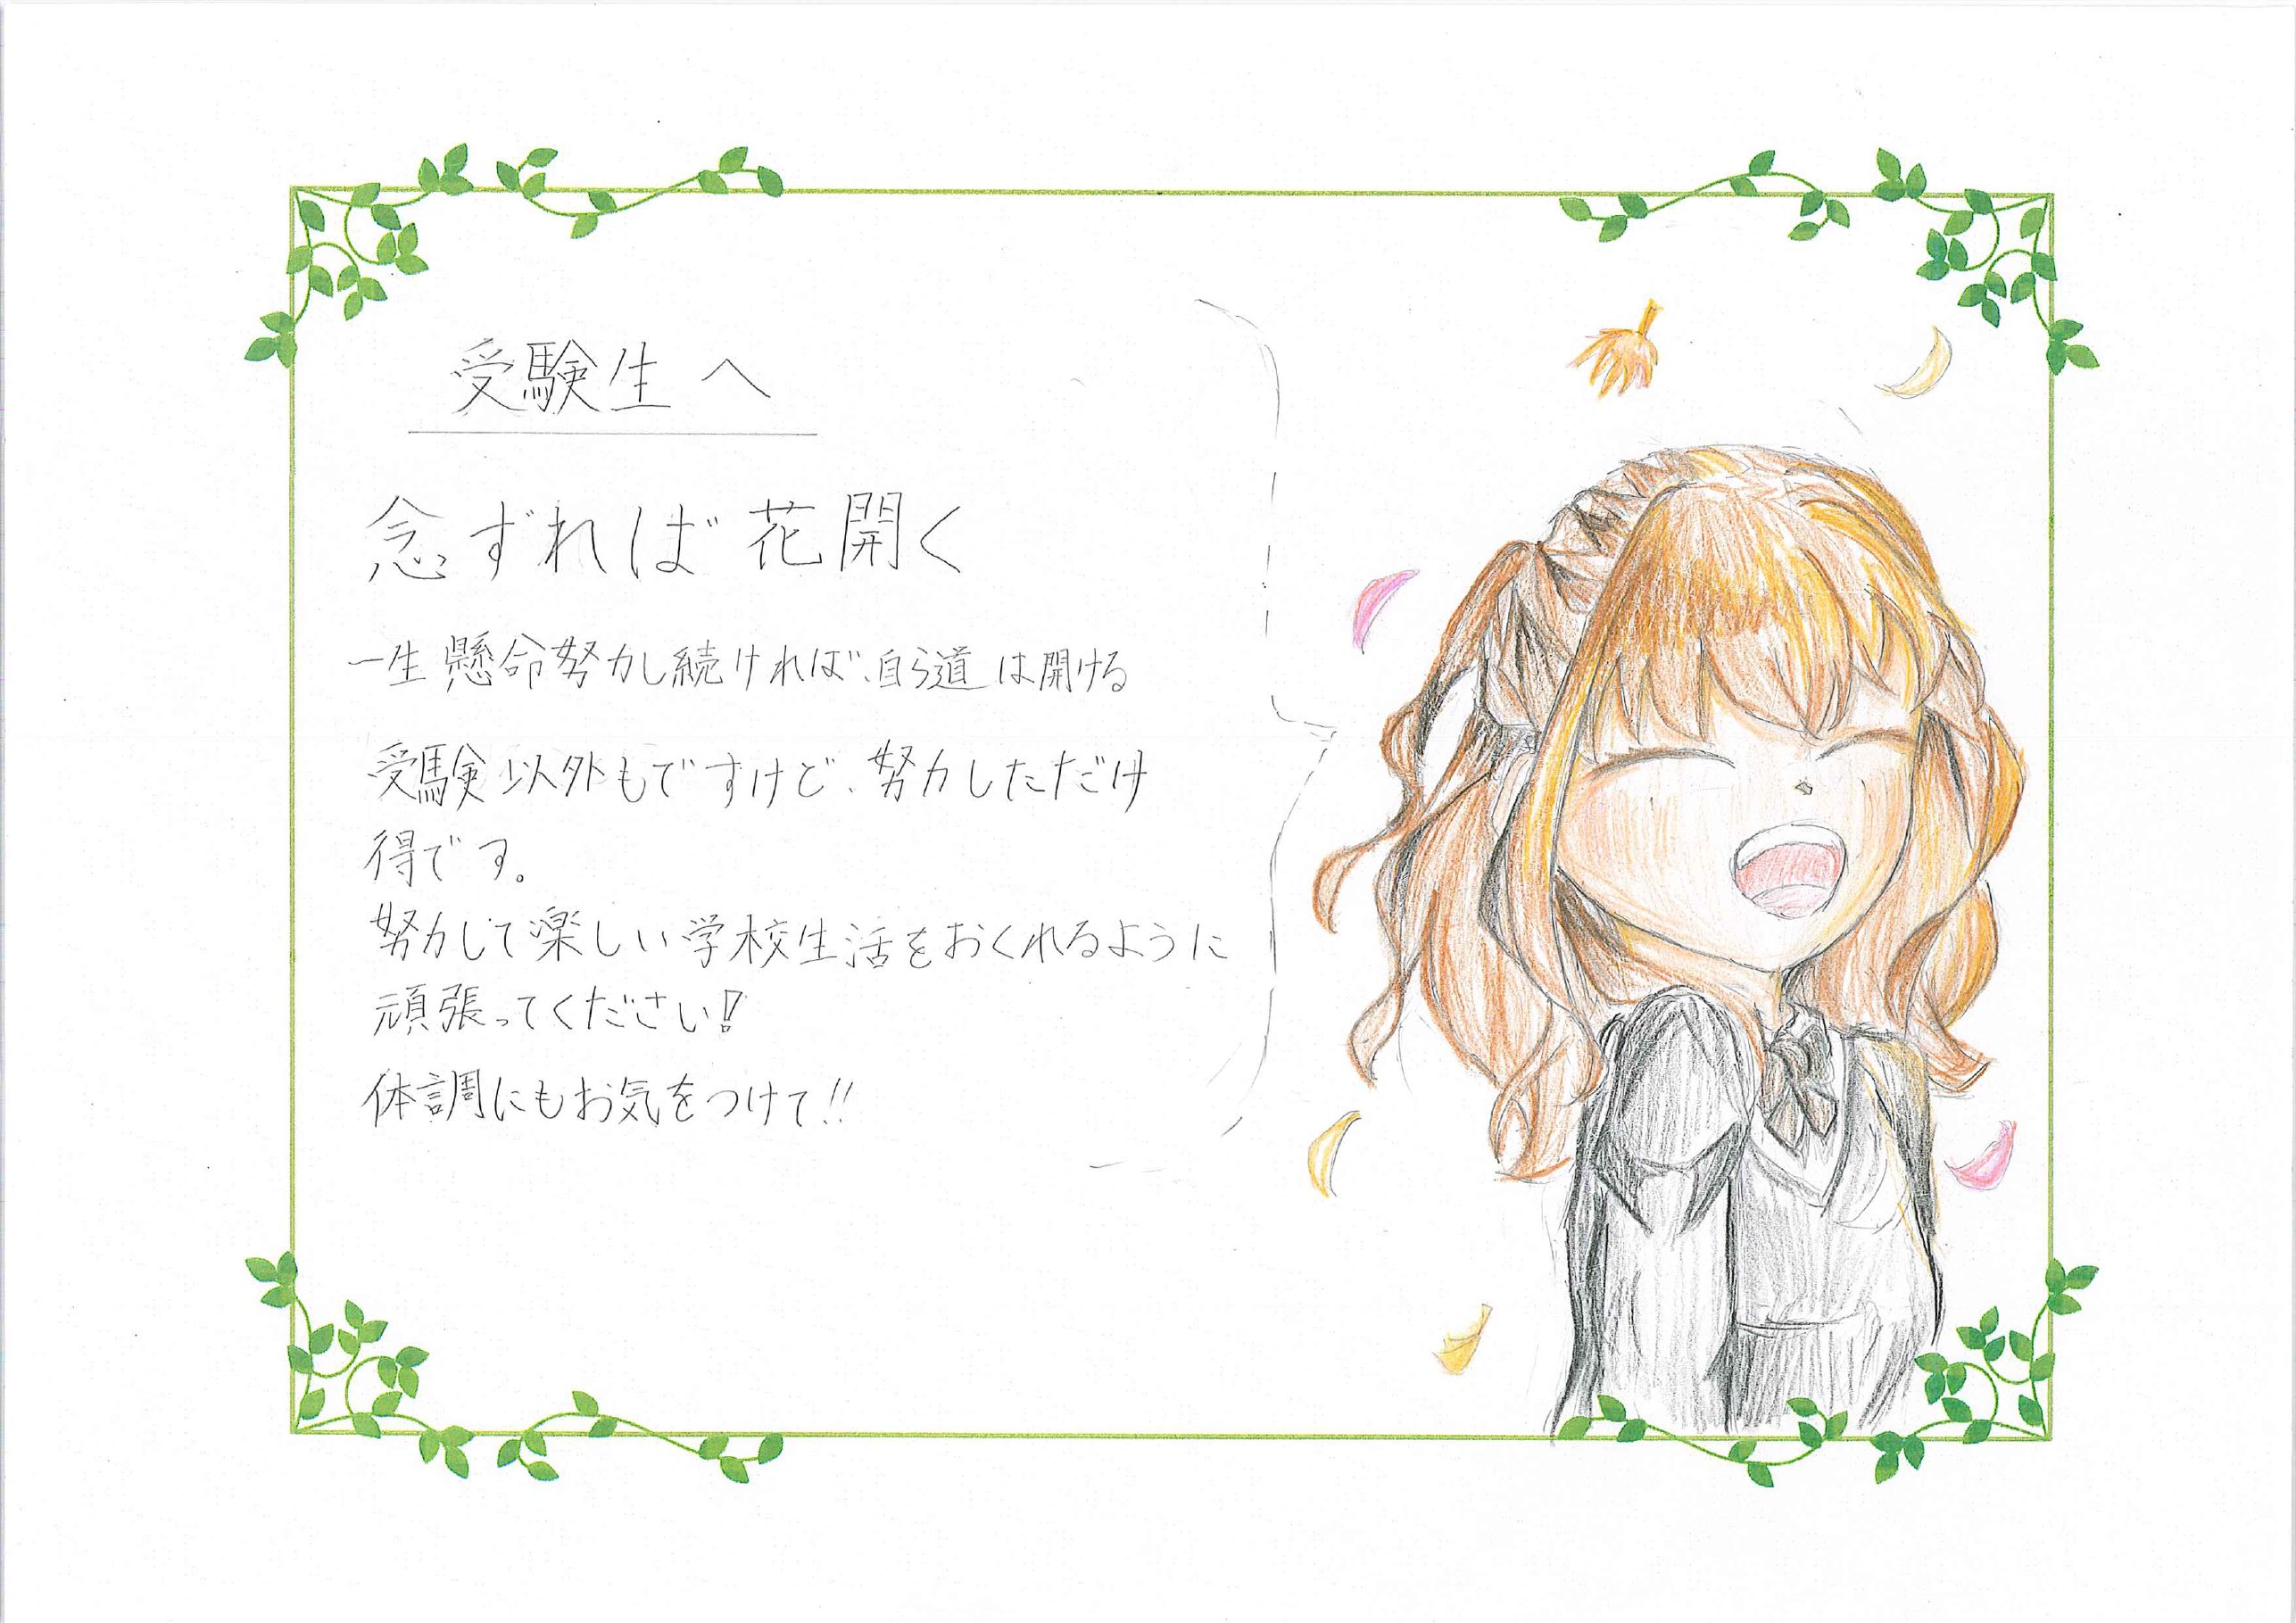 受験生へ
念ずれば花開く
一生懸命努力し続ければ、自ら道は開ける
受験以外もですけど、努力しただけ
得です。
努力して楽しい学校生活をおくれるように
頑張ってください!!
体調にもお気をつけて!!